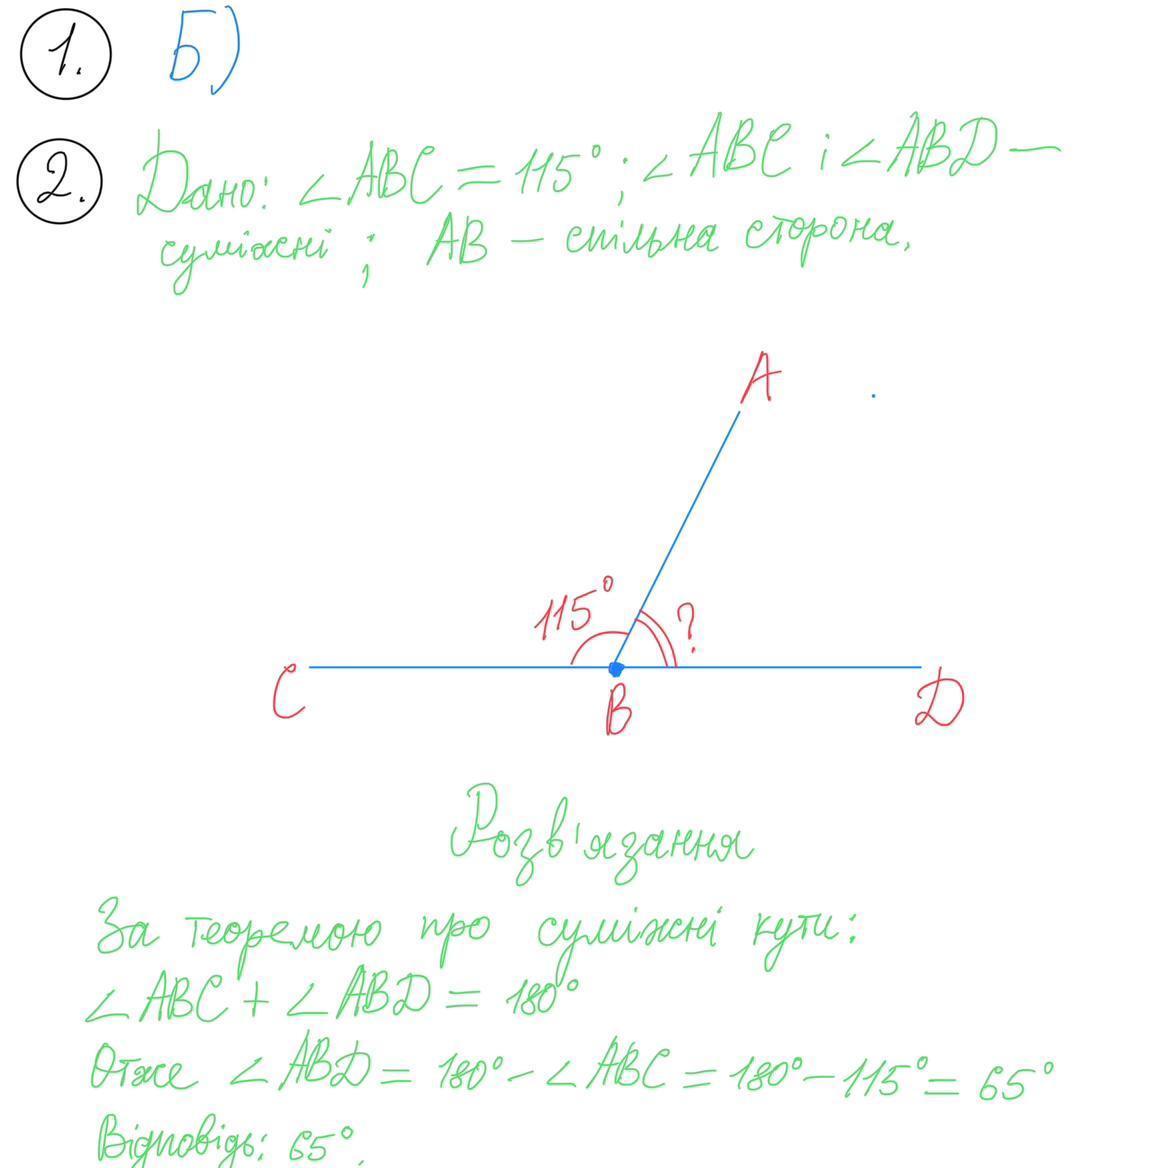 1. Б)
2. Дано: ∠ABC = 115°; ∠ABC і ∠ABD —
суміжні; AB — спільна сторона.
A
115° ?
C B D
Розв'язання
За теоремою про суміжні кути:
∠ABC + ∠ABD = 180°
Отже ∠ABD = 180° - ∠ABC = 180° - 115° = 65°
Відповідь: 65°.